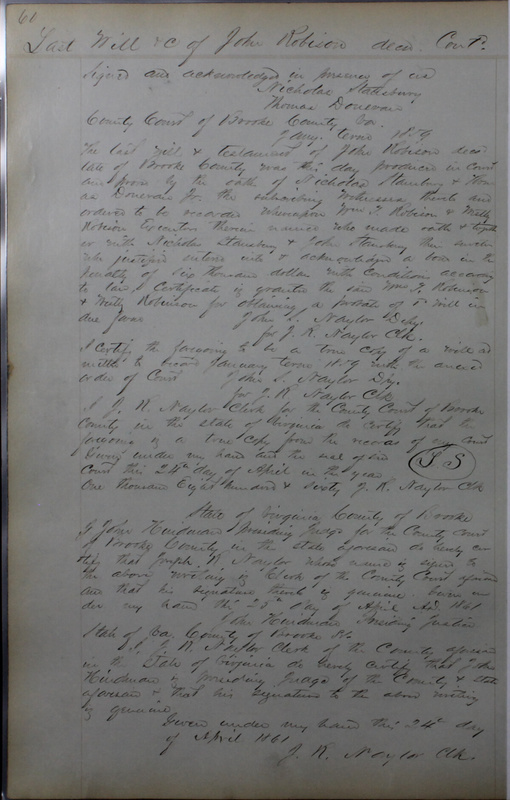 60
Last Will &c of John Robison decd. Cont.
Signed and acknowledged in presence of us
Nicholas Stansbury
Thomas Donevan
County Court of Brooke County Va.
Jany. term 1859
The last will & testament of John Robison decd
late of Brooke County was this day produced in Court
and proven by the oaths of Nicholas Stansbury & Thom
as Donevan Jr. the subscribing witnesses thereto and
ordered to be recorded whereupon Wm. Robison & Willy
Robison Executors therein named who made oath & togeth
er with Nicholas Stansbury & John Stansbury their securities
who justified entered into & acknowledged a bond in the
penalty of six thousand dollars with condition according
to law, Certificate is granted the said Wm. Robinson
& Willy Robinson for obtaining a probate of sd will in
due form
John S. Naylor Dpy.
for J. R. Naylor Clk.
I certify the foregoing to be a true copy of a will ad
mitted to record January term 1859 with the annexed
order of Court John S. Naylor Dy.
for J. R. Naylor Clk
I J. R. Naylor Clerk for the County Court of Brooke
County in the state of Virginia do certify that the
foregoing is a true copy from the records of my Court
Given under my hand and the seal of said
Court this 24th day of April in the year
One thousand Eight hundred & sixty J. R. Naylor Clk
State of Virginia County of Brooke
I John Hindman Presiding Judge for the County Court
of Brooke County in the state aforesaid do hereby cer
tify that Joseph R. Naylor whose name is signed to
the above writing is Clerk of the County Court aforesaid
and that his signature thereto is genuine. Given un
der my hand this 25th day of April A.D. 1861
John Hindman Presiding Justice
State of Va. County of Brooke
I, J. R. Naylor Clerk of the County aforesaid
in the State of Virginia do hereby certify that John
Hindman is presiding Judge of the County & state
aforesaid & that his signature to the above writing
is genuine
Given under my hand this 24th day
of April 1861
J. R. Naylor Clk.